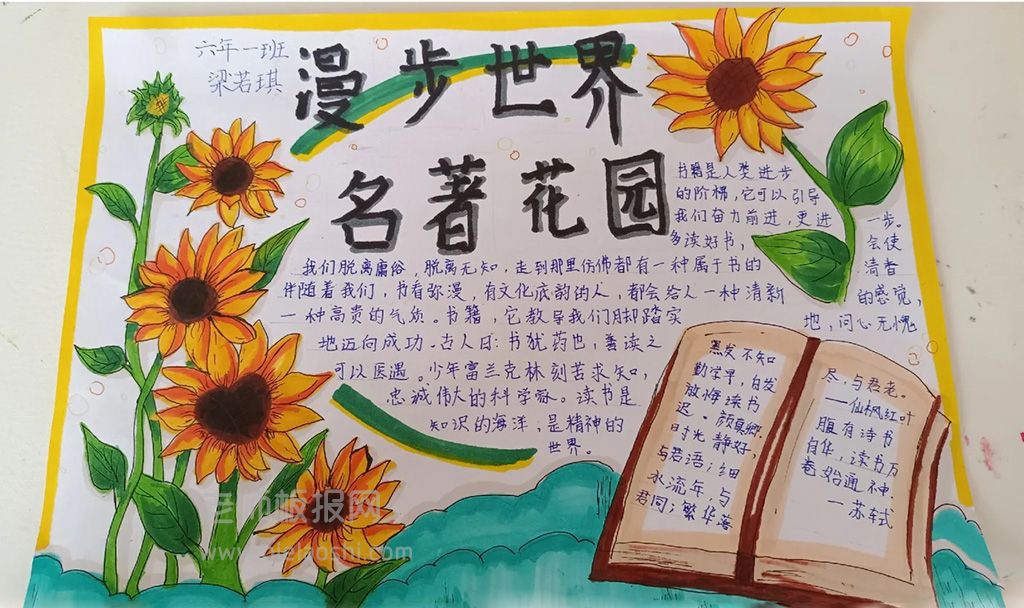 六年一班
梁若琪
漫步世界
名著花园
书籍是人类进步
的阶梯,它可以引导
我们奋力前进,更进一步。
多读好书,会使
我们脱离庸俗,脱离无知,走到那里仿佛都有一种属于书的清香
伴随着我们,书香弥漫,有文化底韵的人,都会给人一种清新的感觉,
一种高贵的气质。书籍,它教导我们脚踏实地,问心无愧
地迈向成功.古人曰:书犹药也,善读之
可以医遇。少年富兰克林刻苦求知,
忠诚伟大的科学家。读书是
知识的海洋,是精神的
世界。
黑发不知
勤学早,白发
放悔读书
迟。颜真卿.
时光静好,
与君语;细
水流年,与
君同;繁华落
尽,与君老。
—仙枫红叶
腹有诗书
自华,读书万
卷始通神.
—苏轼
板报网